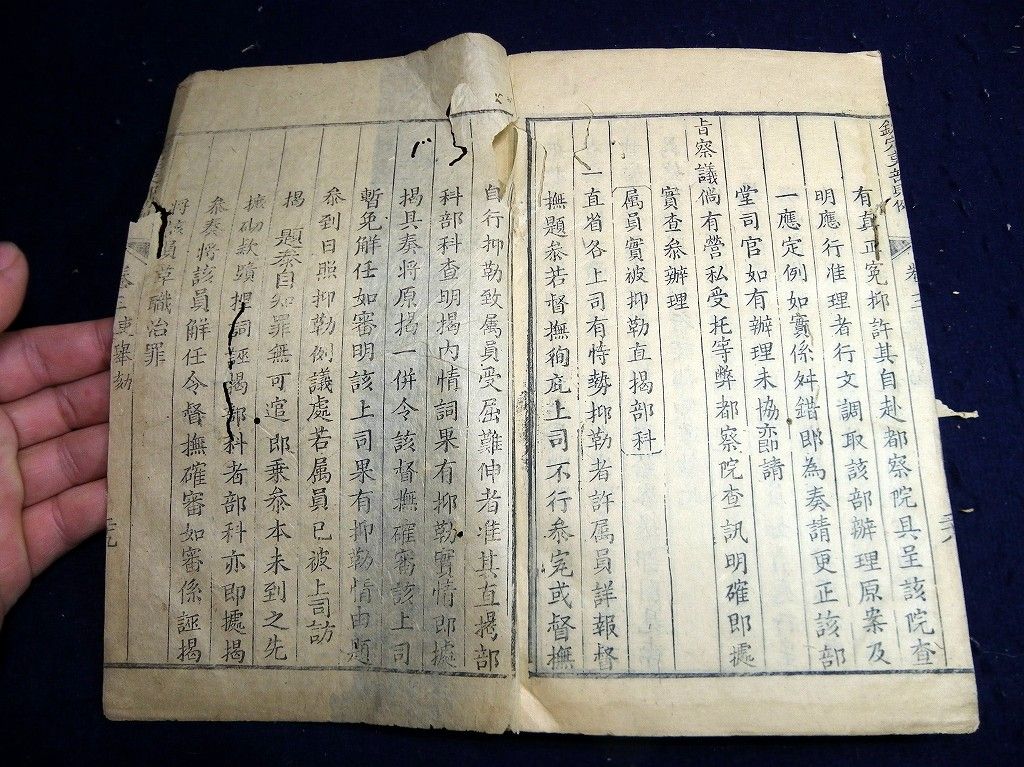 有真正冤抑許其自赴都察院具呈該院查
明應行准理者行文調取該部辦理原案及
一應定例如實係舛錯即為奏請更正該部
堂司官如有辦理未協即請
旨察議倘有營私受托等弊都察院查訊明確即據
實查叅辦理
属員實被抑勒直揭部科
一直省各上司有恃勢抑勒者許属員詳報督
撫題叅若督撫徇庇上司不行叅究或督撫
自行抑勒致属員受屈難伸者准其直揭部
科部科查明揭內情詞果有抑勒實情即據
揭具奏將原揭一併令該督撫確審該上司
暫免解任如審明該上司果有抑勒情由題
叅到日照抑勒例議處若属員已被上司訪
揭題叅自知罪無可逭即乗叅本未到之先
摭砌款蹟捏詞誣揭部科者部科亦即據揭
叅奏將該員解任令督撫確審如審係誣揭
將該員革職治罪
卷三
卷三